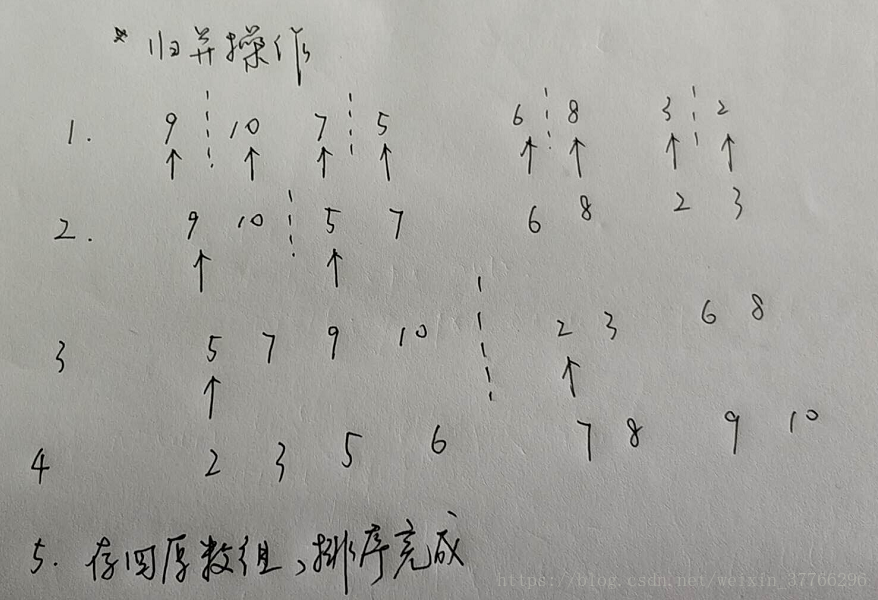 * 归并操作
1. 9 10 7 5 6 8 3 2
2. 9 10 5 7 6 8 2 3
3 5 7 9 10 2 3 6 8
4 2 3 5 6 7 8 9 10
5. 存回原数组,排序完成
https://blog.csdn.net/weixin_37766296